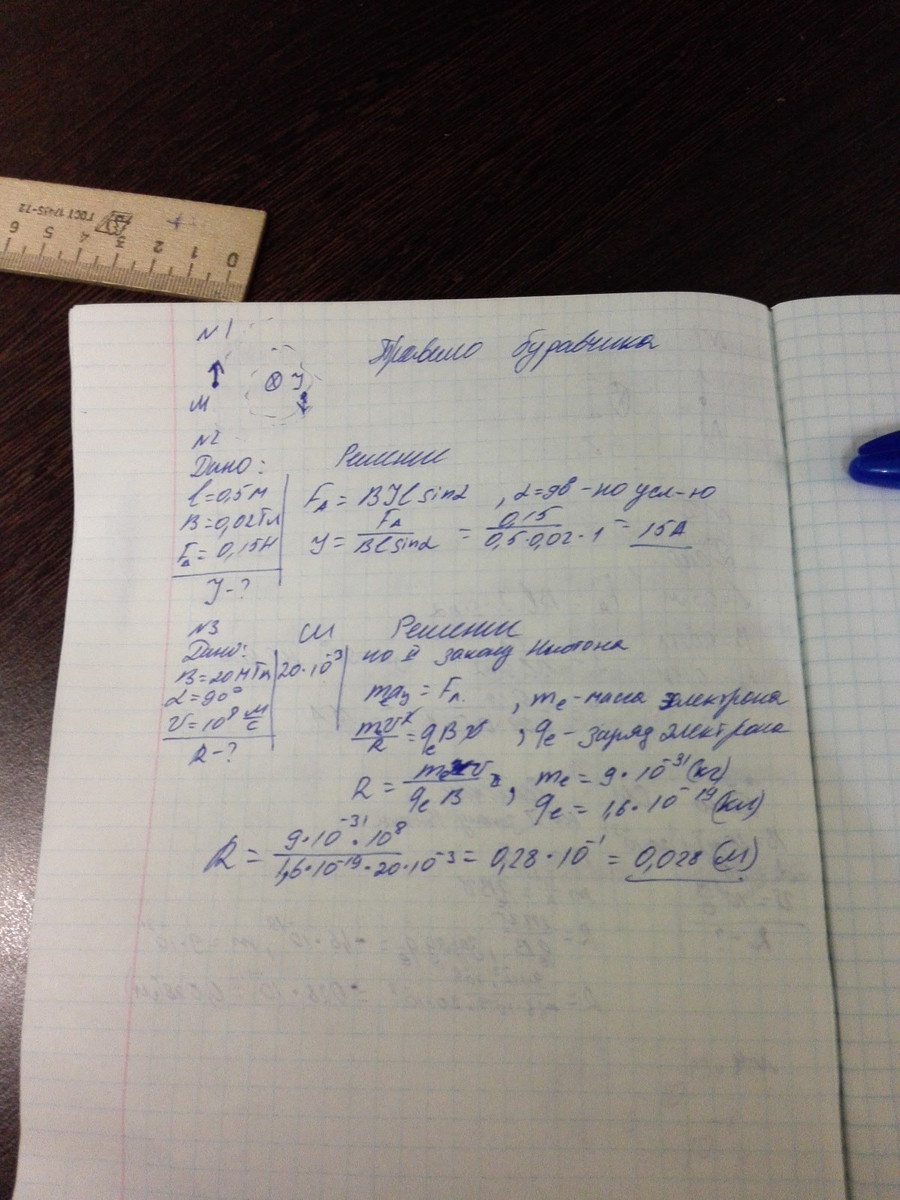 ГОСТ 17435-72
0 1 2 3 4 5 6
N1
Правило буравчика
⊗ J
M
N2
Дано: Решение
l=0,5м
B=0,02Тл
Fₐ=0,15Н
J-?
Fₐ = BJl sinα , α=90 -по усл-ю
J = Fₐ/(Bl sinα) = 0,15/(0,5·0,02·1) = 15А
N3 СИ Решение
Дано:
B=20мТл 20·10⁻³
α=90°
v=10⁸ м/с
R-?
по II закону Ньютона
mₑay = Fл. , mₑ-масса электрона
mv²/R = qₑBv , qₑ-заряд электрона
R = mₑv/(qₑB) , mₑ = 9·10⁻³¹(кг)
qₑ = 1,6·10⁻¹⁹(кл)
R = 9·10⁻³¹·10⁸/(1,6·10⁻¹⁹·20·10⁻³) = 0,28·10⁻¹ = 0,028(м)